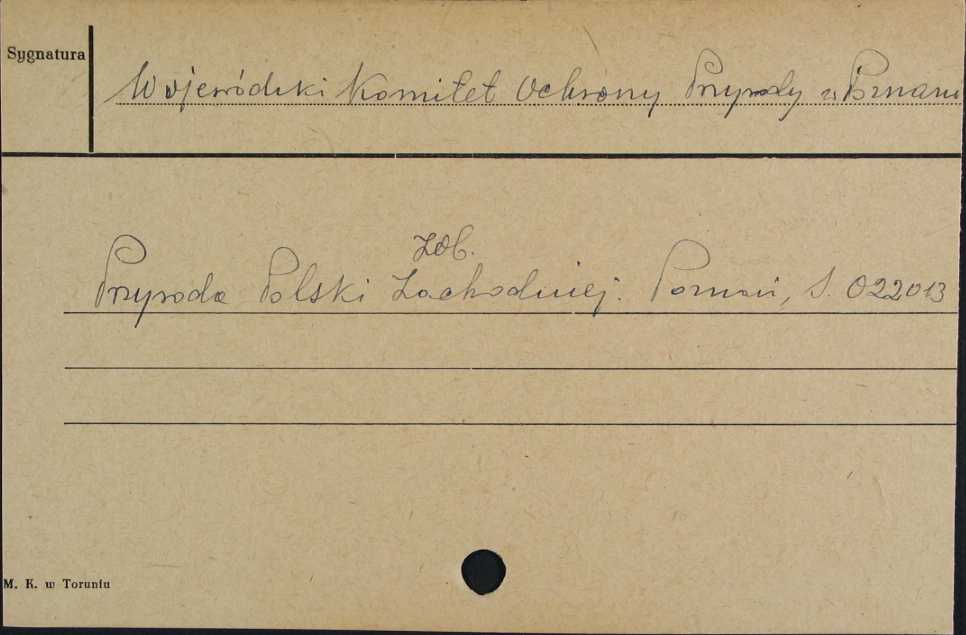 Sygnatura
Wojewódzki Komitet Ochrony Przyrody w Poznaniu
Zob.
Przyroda Polski Zachodniej. Poznań, S. 022013
M. K. w Toruniu